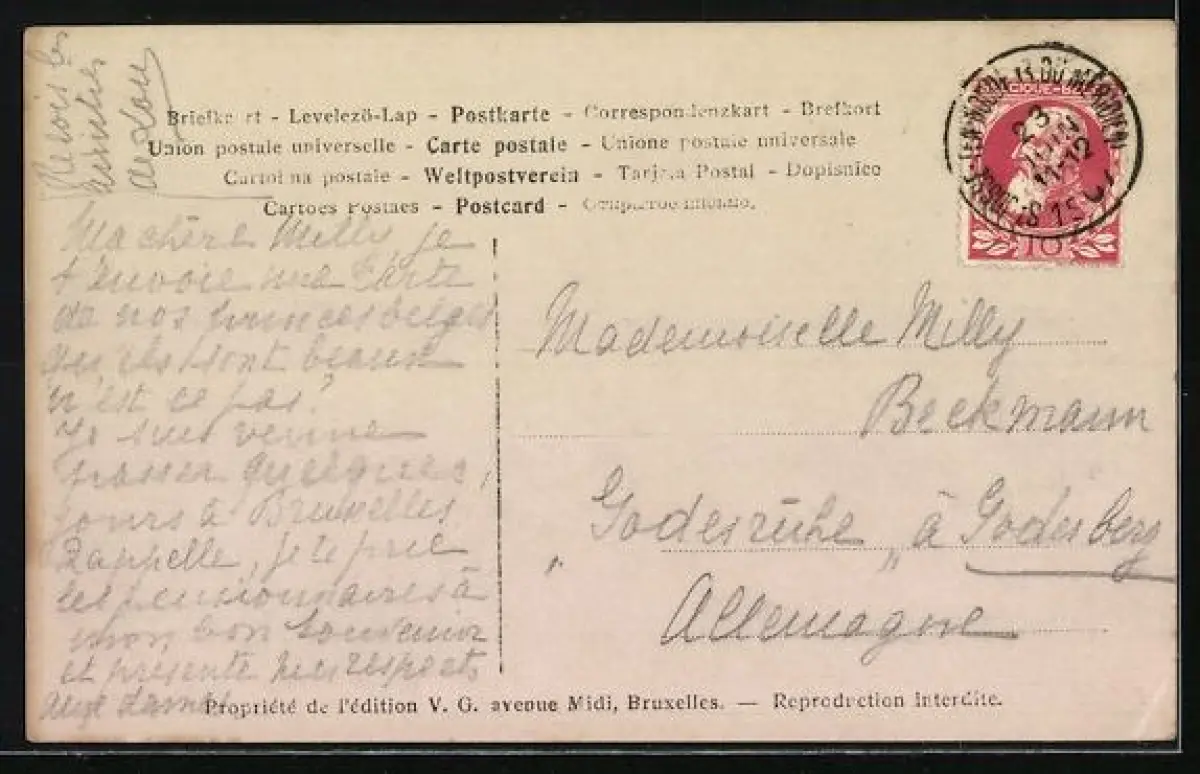 Reçois les
amitiés
de Lou
Briefkart - Levelezö-Lap - Postkarte - Correspondenzkart - Brefkort
Union postale universelle - Carte postale - Unione postale universale
Cartolina postale - Weltpostverein - Tarjeta Postal - Dopisnice
Cartoes Postaes - Postcard -
Ma chère Milly, je
t'envoie une carte
de nos princes belges
ils sont beaux
n'est ce pas?
Je suis venue
passer quelques
jours à Bruxelles
Rappelle, je te prie
les pensionnaires à
mon bon souvenir
et présente mes respects
aux dames
Mademoiselle Milly
Beckmann
"Godesrühe" à Godesberg
Allemagne
23
JUIN
11-12
10
Propriété de l'édition V. G. avenue Midi, Bruxelles. — Reproduction interdite.